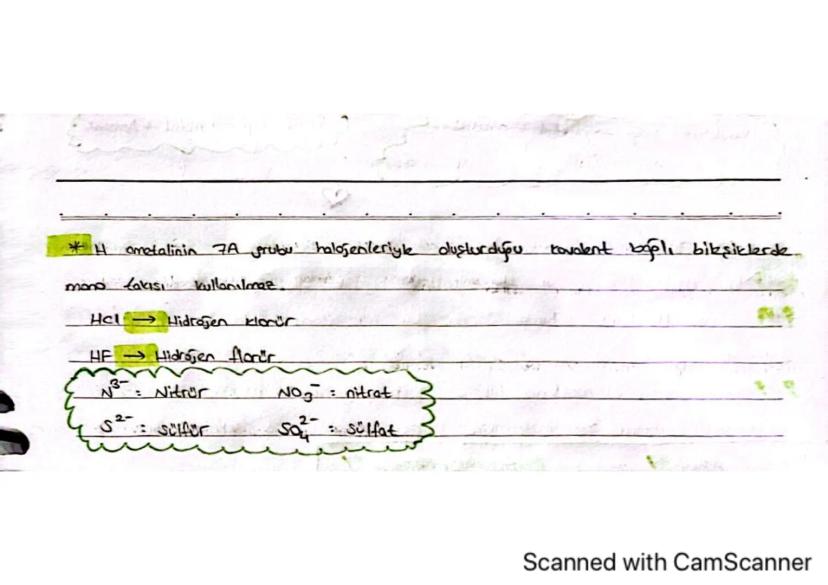 * H ametalinin 7A grubu halojenleriyle oluşturduğu kovalent bağlı bileşiklerde
mono takısı kullanılmaz.
HCl → Hidrojen klorür
HF → Hidrojen florür
N³⁻ : Nitrür NO₃⁻ : nitrat
S²⁻ : sülfür SO₄²⁻ : sülfat
Scanned with CamScanner